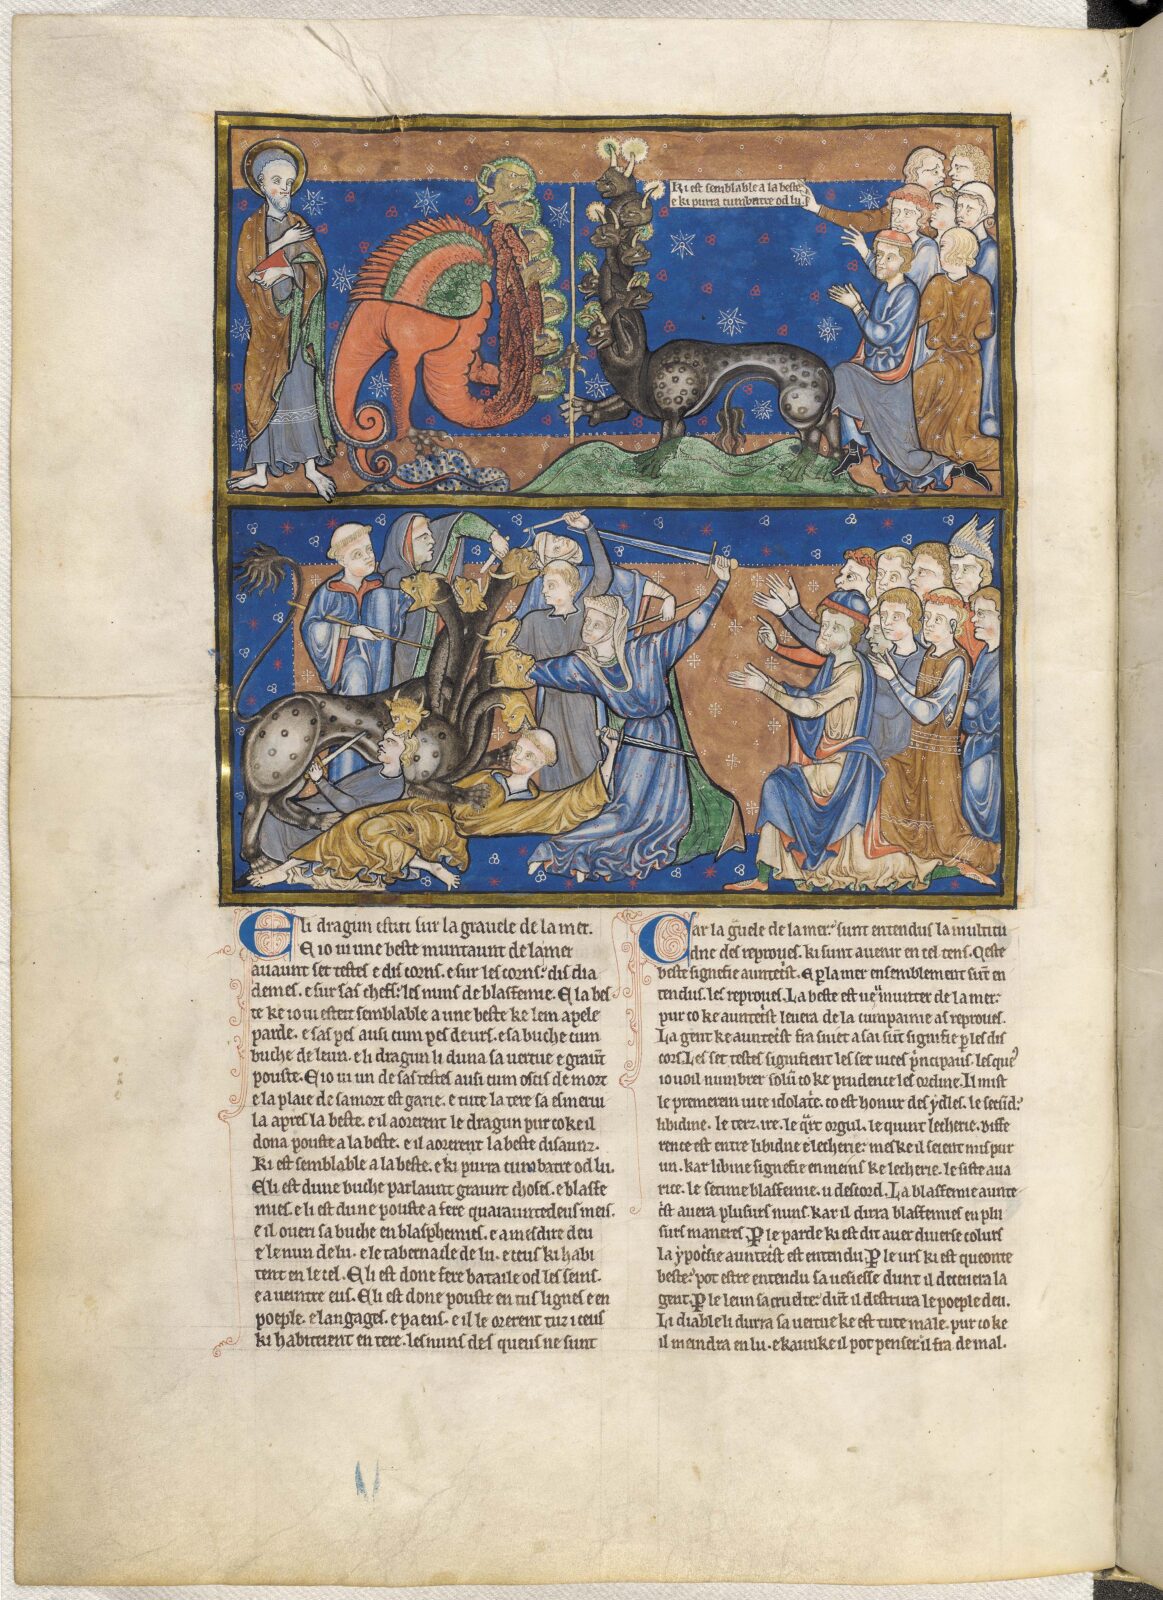 Ki est semblable a la beste.
e ki purra cumbatre od lu.
E li dragun estut sur la grauele de la mer.
E io ui une beste muntaunt de la mer
auaunt set testes e dis corns. e sur les corns: dis dia
demes. e sur sas chefs: les nuns de blasfemie. E la bes
te ke io ui esteit semblable a une beste ke lem apele
parde. e sas pes ausi cum pes de urs. e sa buche cum
buche de leun. e li dragun li duna sa uertue e graunt
pouste. E io ui un de sas testes ausi cum oscis de mort
e la plaie de sa mort est garie. e tute la tere sa esmerui
la apres la beste. e il aorerent le dragun pur co ke il
dona pouste a la beste. e il aorerent la beste disaunz.
Ki est semblable a la beste. e ki purra cumbatre od lu.
E li est dune buche parlaunt graunt choses. e blasfe
mies. e li est dune pouste a fere quaraunte deus meis.
e il oueri sa buche en blasphemies. e a mesdire deu
e le nun de lu. e le tabernacle de lu. e ceus ki habi
tent en le cel. E li est done fere bataile od les seins.
e a ueintre eus. E li est done pouste en tus lignes e en
poeple. e langages. e paens. e il le orerent tuz iceus
ki habiteient en tere. les nuns des queus ne sunt
Car la guele de la mer: sunt entendus la multitu
dne des reproues. ki sunt auenir en cel tens. Ceste
beste signefie auntecrist. E par la mer ensemblement sunt en
tendus. les reproues. La beste est ueu munter de la mer:
pur co ke auntecrist leuera de la cumpainie as reproues.
La gent ke auntecrist fra suiet a sai sunt signifie par les dis
cors. Les set testes signifient les set uices principaus. les queus
io uoil numbrer solum co ke prudence les ordine. Il mist
le premerein uice idolatre. co est honur des ydles. le secund:
libidine. le terz. ire. le quart orgul. le quint lecherie. Diffe
rence est entre libidine e lecherie: mes ke il seient mis pur
un. kar libine signefie en meins ke lecherie. le siste aua
rice. le setime blasfemie. u descord. La blasfemie aunte
crist auera plusurs nuns. kar il dirra blasfemies en plu
surs maneres. Par le parde ki est dit auer diuerse colurs
la ypocrisie auntecrist est entendu. Par le urs ki est queonte
beste: pot estre entendu sa uesiesse dunt il deceuera la
gent. Par le leun sa cruelte: dunt il destrura le poeple deu.
Li diable li durra sa uertue ke est tute male. pur co ke
il meindra en lu. e kantke il pot penser: il fra de mal.